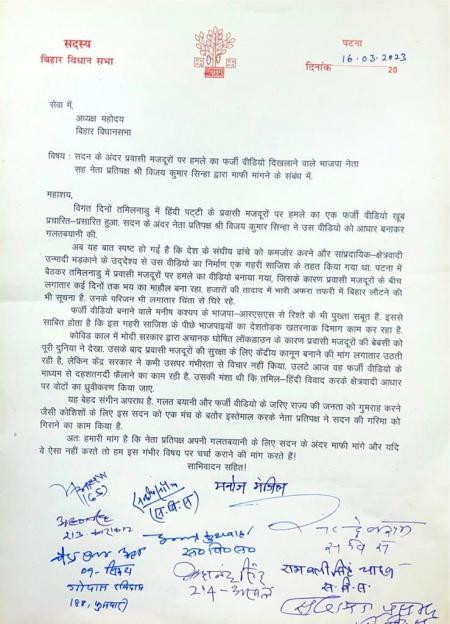 सदस्य
बिहार विधान सभा
पटना
दिनांक 16.03.2023 20
सेवा में,
अध्यक्ष महोदय
बिहार विधानसभा
विषय : सदन के अंदर प्रवासी मजदूरों पर हमले का फर्जी वीडियो दिखलाने वाले भाजपा नेता
सह नेता प्रतिपक्ष श्री विजय कुमार सिन्हा द्वारा माफी मांगने के संबंध में.
महाशय,
विगत दिनों तमिलनाडु में हिंदी पट्टी के प्रवासी मजदूरों पर हमले का एक फर्जी वीडियो खूब
प्रचारित–प्रसारित हुआ. सदन के अंदर नेता प्रतिपक्ष श्री विजय कुमार सिन्हा ने उस वीडियो को आधार बनाकर
गलतबयानी की.
अब यह बात स्पष्ट हो गई है कि देश के संघीय ढांचे को कमजोर करने और सांप्रदायिक–क्षेत्रवादी
उन्मादी भड़काने के उद्देश्य से उस वीडियो का निर्माण एक गहरी साजिश के तहत किया गया था. पटना में
बैठकर तमिलनाडु में प्रवासी मजदूरों पर हमले का वीडियो बनाया गया, जिसके कारण प्रवासी मजदूरों के बीच
लगातार कई दिनों तक भय का माहौल बना रहा. हजारों की तादाद में भारी अफरा तफरी में बिहार लौटने की
भी सूचना है. उनके परिजन भी लगातार चिंता से घिरे रहे.
फर्जी वीडियो बनाने वाले मनीष कश्यप के भाजपा–आरएसएस से रिश्ते के भी पुख्ता सबूत हैं. इससे
साबित होता है कि इस गहरी साजिश के पीछे भाजपाइयों का देशतोड़क खतरनाक दिमाग काम कर रहा है.
कोविड काल में मोदी सरकार द्वारा अचानक घोषित लॉकडाउन के कारण प्रवासी मजदूरों की बेबसी को
पूरी दुनिया ने देखा. उसके बाद प्रवासी मजदूरों की सुरक्षा के लिए केंद्रीय कानून बनाने की मांग लगातार उठती
रही है, लेकिन केंद्र सरकार ने कभी उसपर गंभीरता से विचार नहीं किया. उलटे आज वह फर्जी वीडियो के
माध्यम से दहशतगर्दी फैलाने का काम कर रही है. उसकी मंशा थी कि तमिल–हिंदी विवाद करके क्षेत्रवादी आधार
पर वोटों का ध्रुवीकरण किया जाए.
यह बेहद संगीन अपराध है. गलत बयानी और फर्जी वीडियो के जरिए राज्य की जनता को गुमराह करने
जैसी कोशिशों के लिए इस सदन को एक मंच के बतौर इस्तेमाल करके नेता प्रतिपक्ष ने सदन की गरिमा को
गिराने का काम किया है.
अतः हमारी मांग है कि नेता प्रतिपक्ष अपनी गलतबयानी के लिए सदन के अंदर माफी मांगे और यदि
वे ऐसा नहीं करते तो हम इस गंभीर विषय पर चर्चा कराने की मांग करते हैं!
साभिवादन सहित!
मनोज मंजिल
(स.वि.स)
स० वि० स०
स वि स
रामबली सिंह यादव
स.वि.स.
गोपाल रविदास
188, फुलवारी